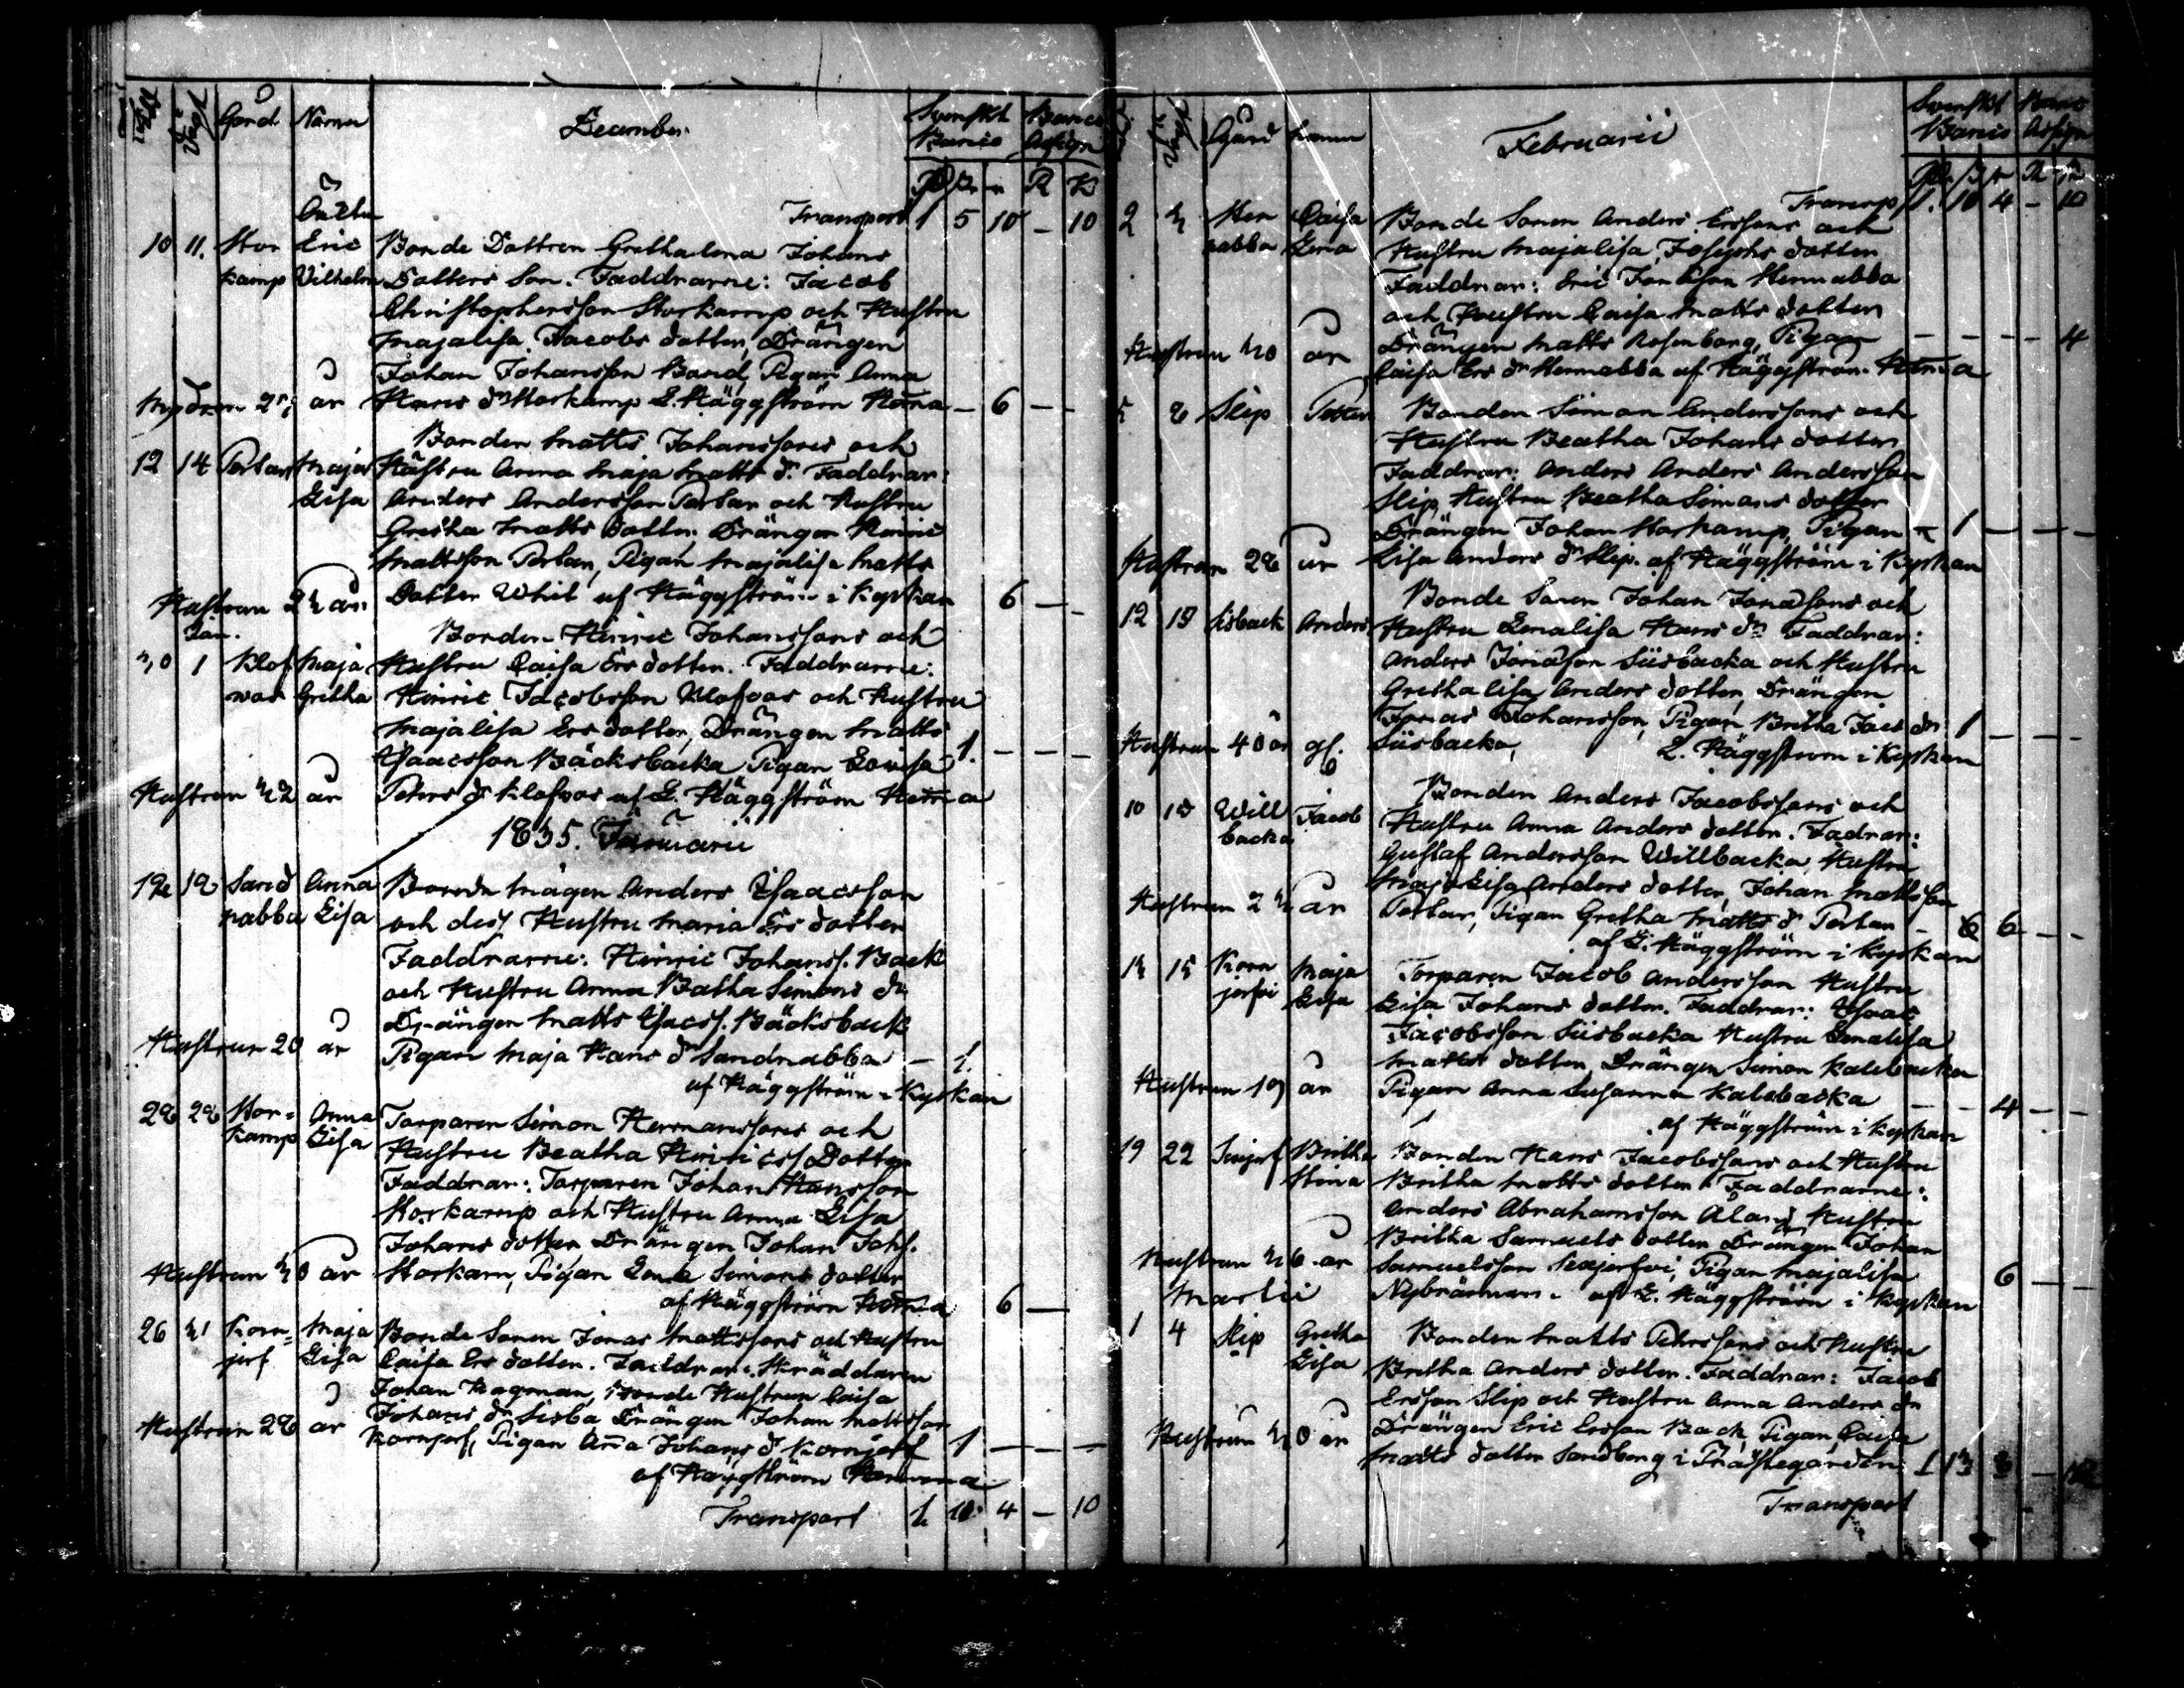 Gård Namn December Svenskt Banco Banco Assign
R K
Oäkta Transport 1 5 10 - 10
10 11. Stor Eric Bonde Dottren Grethalena Johans
kamp Vilhelm Dotters Son. Faddrarne: Jacob
Christophersson Storkamp och Hustru
Majalisa Jacobs dotter, Drängen
Johan Johansson Band, Pigan Anna
år Hans dr Storkamp L. Häggström Hema - 6 - -
Bonden Matts Johanssons och
12 14 Perbas Maja Hustru Anna Maja Matts dr. Faddrar:
Lisa Anders Andersson Perbas och Hustru
Gretha Matts Dotter, Drängen Hinric
Mattsson Perbas, Pigan Majalisa Matts
Hustrun år Dotter af Häggström i Kyrkan 6 - -
Jan. Bonden Hinric Johanssons och
30 1 Klof Maja Hustru Caisa Ers dotter. Faddrarne:
was Gretha Hinric Jacobsson Klofvas och Hustru
Majalisa Ers dotter, Drängen Matts
Isaacsson Bäcksbacka Pigan Lovisa 1. - - -
Hustrun 32 år Pehrs dr Klofvas af L. Häggström Hema
1835. Januarii
18 19 Sand Anna Bonde Mågen Anders Isaacsson
nabba Lisa och dess Hustru Maria Ers dotter
Faddrarne: Hinric Johanss. Back
och Hustru Anna Batha Simons dr
Drängen Matts Isacss. Bäcksback
Hustrun 20 år Pigan Maja Hans dr Sandnabba - 1.
af Häggström i Kyrkan
28 28 Stor= Anna Torparen Simon Hermanssons och
kamp Lisa Hustru Beatha Hinricss Dotter
Faddrar: Torparen Johan Hansson
Storkamp och Hustru Anna Lisa
Johans dotter Drängen Johan Johs.
Hustrun 30 år Storkam, Pigan Lena Simons dotter
af Häggström Hema 6 -
26 31 Korn= Maja Bonde Sonen Jonas Mattssons och Hustru
jerf Lisa Caisa Ers dotter. Faddrar: Skräddaren
Johan Hagman, Bonde Hustrun Caisa
Johans dr Sisba Drängen Johan Mattsson
Hustrun 28 år Kornjerf, Pigan Anna Johans dr Kornjerf 1 - - -
af Häggström Hemma
Transport 1 10 4 - 10
Gård Namn Februarii Svenskt Banco Banco Assign
Transp. 1. 10 4 - 10
2 3 Hem Caisa Bonde Sonen Anders Erssons och
nabba Lena Hustru Majalisa, Josephs dotter
Faddrar: Eric Hemnabba
och Hustru Caisa Matts dotter
Hustrun 30 år Drängen Matts Rosenborg, Pigan - - - - 4
Caisa Ers dr Hemnabba af Häggström Hema
8 Slip Petter Bonden Simon Anderssons och
Hustru Beatha Johans dotter
Faddrar: Anders Anders Andersson
Slip, Hustru Beatha Simons dotter
Drängen Johan Storkamp, Pigan 1 - - -
Hustrun 28 år Lisa Anders dr Slip. af Häggström i Kyrkan
Bonde Sonen Johan Jonassons och
12 15 Sisback Anders Hustru Lenalisa Hans dr Faddrar:
Anders Jonasson Siisbacka och Hustru
Gretha Lisa Anders dotter, Drängen
Jonas Johansson, Pigan Britha Jacs dr 1 - - -
Hustrun 40 år gl. Siisbacka, L. Häggström i Kyrkan
Bonden Anders Jacobssons och
10 15 Will Jacob Hustru Anna Anders dotter. Fadrar:
backa Gustaf Andersson Willbacka, Hustru
Maja Lisa Anders dotter, Johan Mattsson
Hustrun 23 år Perbas, Pigan Gretha Matts dr Perbas - 6 6 - -
af L. Häggström i Kyrkan
13 15 Korn Maja Torparen Jacob Andersson Hustru
jerfvi Lisa Lisa Johans dotter. Faddrar: Isaac
Jacobsson Siisbacka Hustru Lenalisa
Matts dotter, Drängen Simon Kalebacka
Hustrun 19 år Pigan Anna Susanna Kalabacka - - 4 - -
af Häggström i Kyrkan
19 22 Britha Bonden Hans Jacobssons och Hustru
Stina Britha Matts dotter Faddrarne:
Anders Abrahamsson Åland Hustru
Britha Samuels dotter Drängen Johan
Hustrun 36 år Samuelsson Pigan Majalisa 6 -
Martii Nybränman af L. Häggström i Kyrkan
1 4 Slip Gretha Bonden Matts Pehrssons och Hustru
Lisa Britha Anders dotter. Faddrar: Jacob
Ersson Slip och Hustru Anna Anders dr
Hustrun 30 år Drängen Eric Ersson Back, Pigan Caisa
Matts dotter Sandberg i Prästegården
Transport